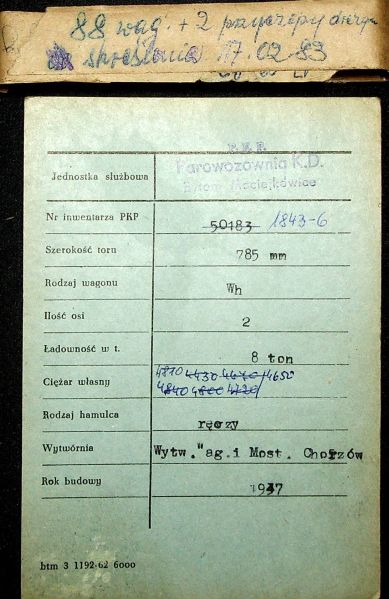 88 wag. + 2 przyczepy
skreślenia 17.02 83
P.K.P.
Parowozownia K.D.
Bytom Maciejkowice
Jednostka służbowa
Nr inwentarza PKP 50183 1843-6
Szerokość toru 785 mm
Rodzaj wagonu Wh
Ilość osi 2
Ładowność w t. 8 ton
Ciężar własny 4810 4430 4670 4650
4840 4800 4720
Rodzaj hamulca ręczy
Wytwórnia Wytw."ag.i Most. Chorzów
Rok budowy 1937
btm 3 1192-62 6000